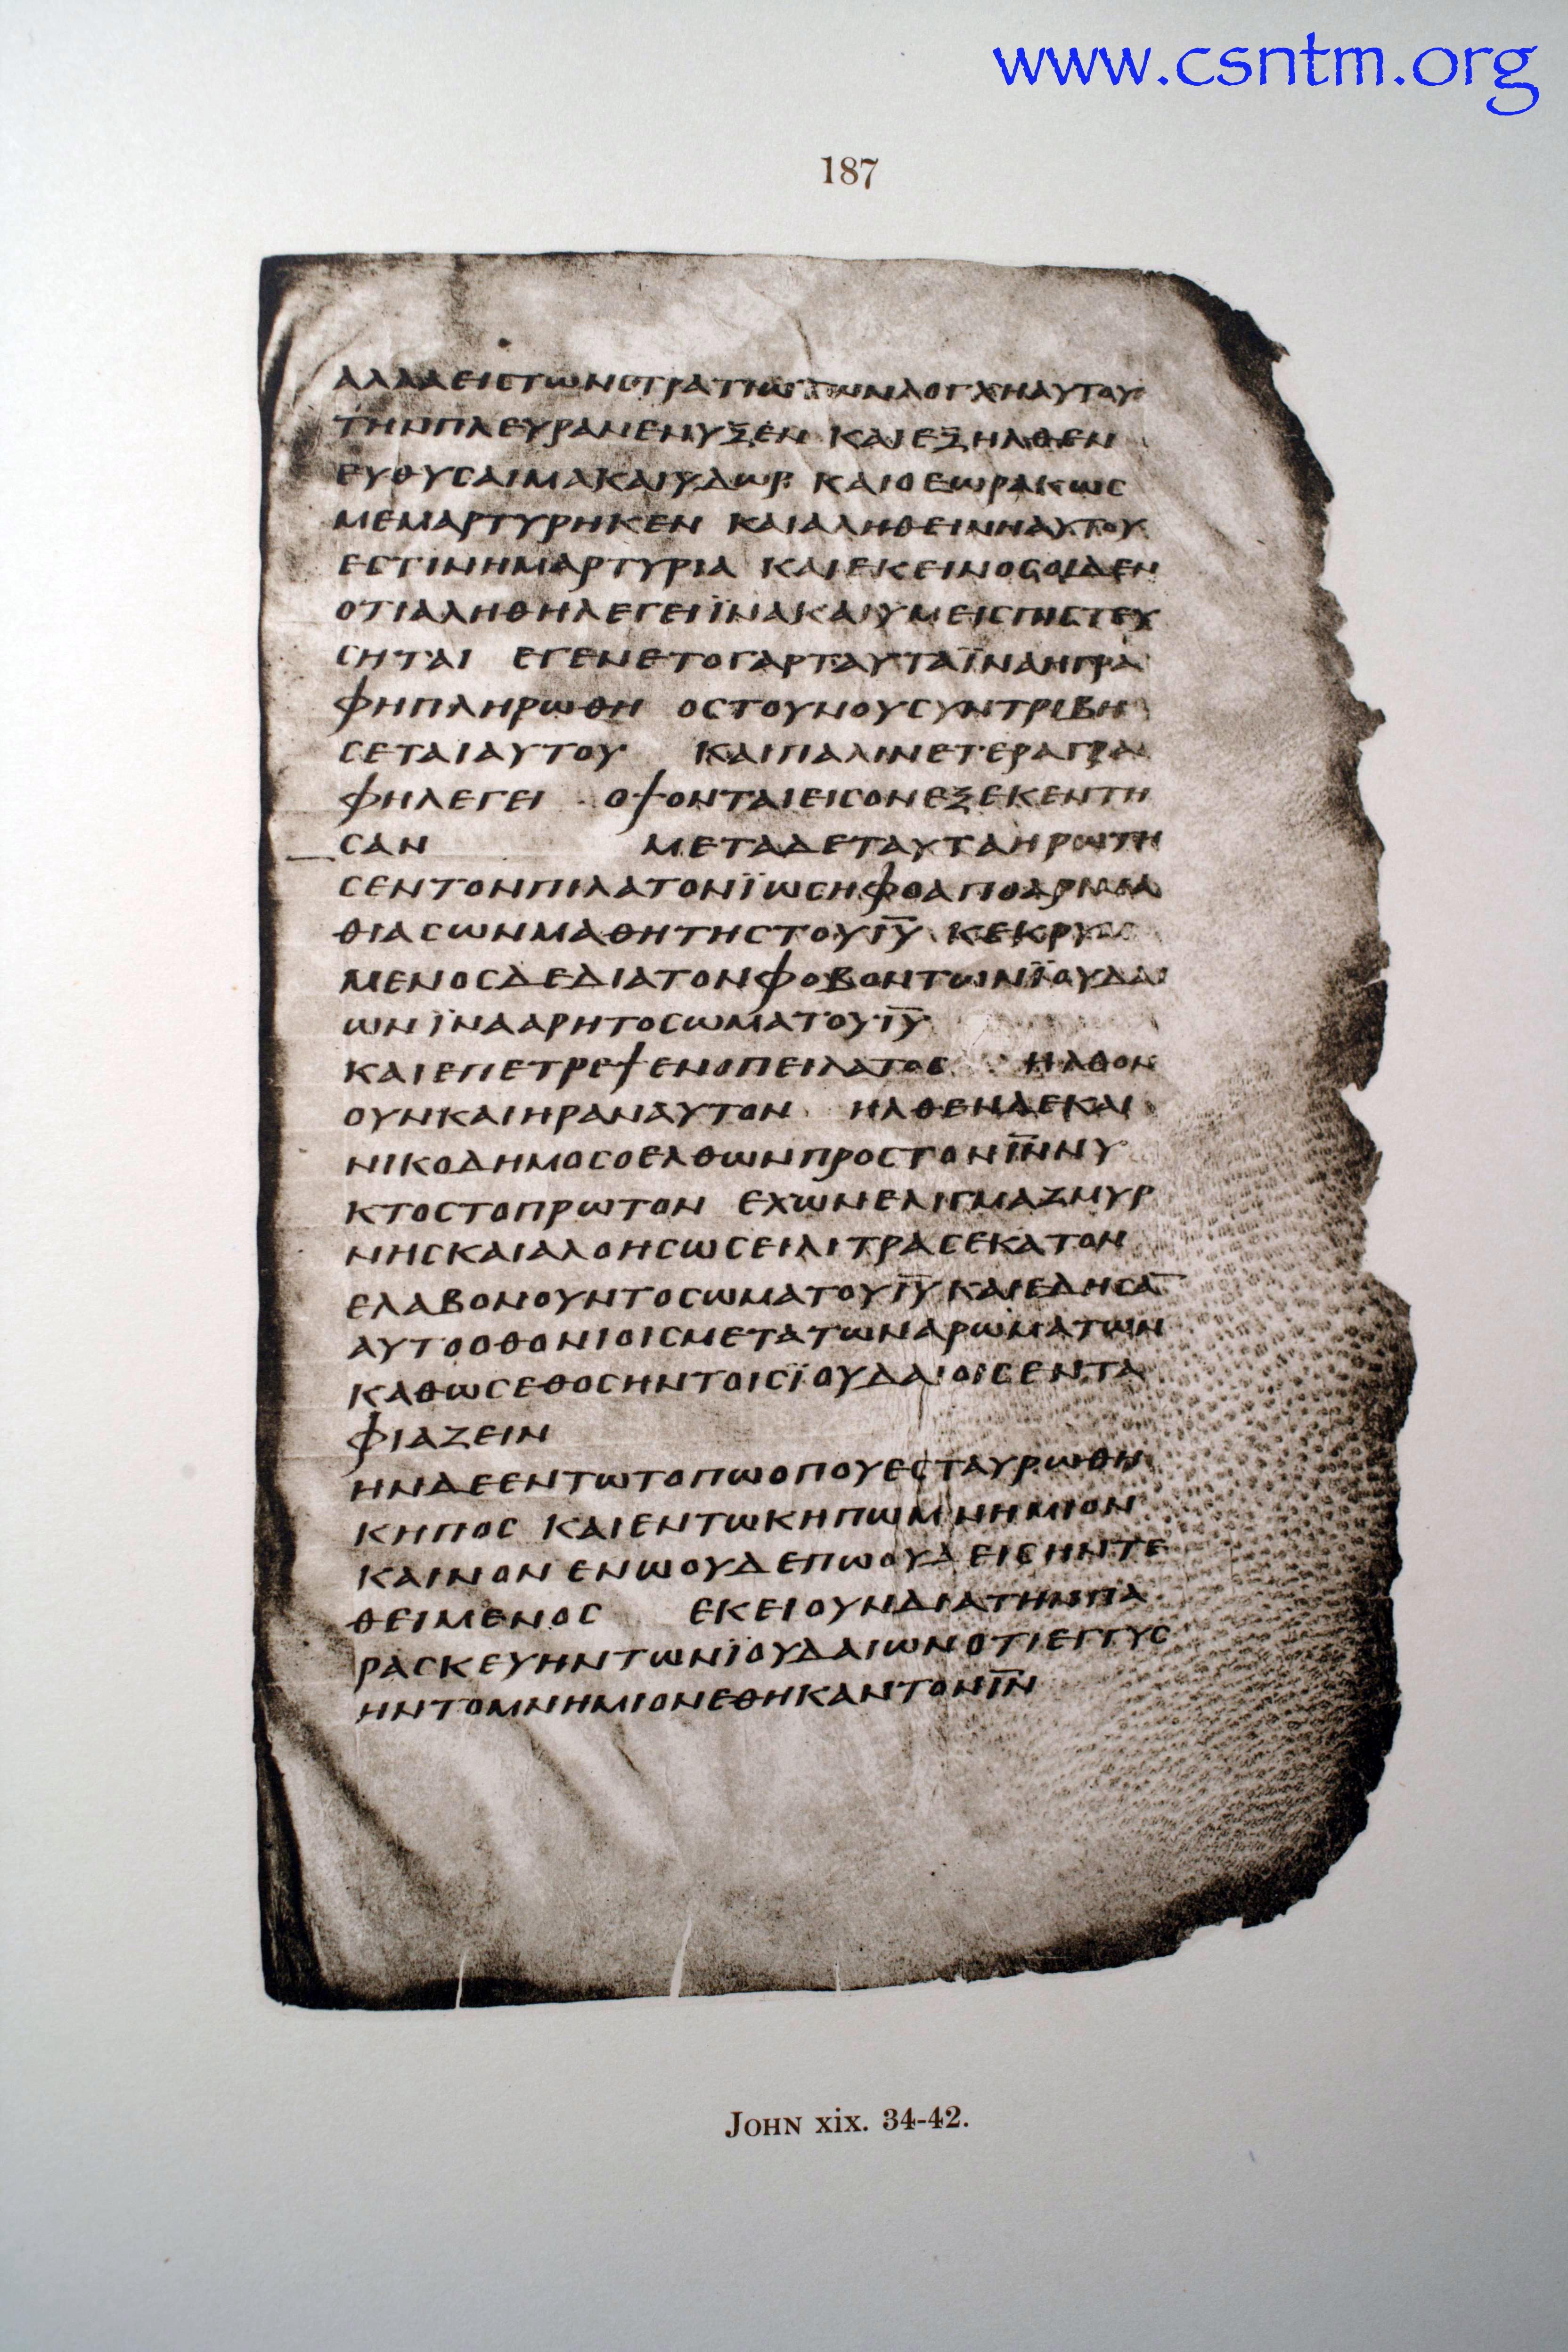 www.csntm.org
187
ΑΛΛΑΕΙΣΤΩΝΣΤΡΑΤΙΩΤΩΝΛΟΓΧΗΑΥΤΟΥ
ΤΗΝΠΛΕΥΡΑΝΕΝΥΞΕΝ ΚΑΙΕΞΗΛΘΕΝ
ΕΥΘΥΣΑΙΜΑΚΑΙΥΔΩΡ ΚΑΙΟΕΩΡΑΚΩΣ
ΜΕΜΑΡΤΥΡΗΚΕΝ ΚΑΙΑΛΗΘΕΙΝΗΑΥΤΟΥ
ΕΣΤΙΝΗΜΑΡΤΥΡΙΑ ΚΑΙΕΚΕΙΝΟΣΟΙΔΕΝ
ΟΤΙΑΛΗΘΗΛΕΓΕΙΪΝΑΚΑΙΥΜΕΙΣΠΙΣΤΕΥ
ΣΗΤΑΙ ΕΓΕΝΕΤΟΓΑΡΤΑΥΤΑΪΝΑΗΓΡΑ
ΦΗΠΛΗΡΩΘΗ ΟΣΤΟΥΝΟΥΣΥΝΤΡΙΒΗ
ΣΕΤΑΙΑΥΤΟΥ ΚΑΙΠΑΛΙΝΕΤΕΡΑΓΡΑ
ΦΗΛΕΓΕΙ ΟΨΟΝΤΑΙΕΙΣΟΝΕΞΕΚΕΝΤΗ
ΣΑΝ ΜΕΤΑΔΕΤΑΥΤΑΗΡΩΤΗ
ΣΕΝΤΟΝΠΙΛΑΤΟΝΪΩΣΗΦΟΑΠΟΑΡΙΜΑ
ΘΙΑΣΩΝΜΑΘΗΤΗΣΤΟΥΙ̅Υ̅ ΚΕΚΡΥΜ
ΜΕΝΟΣΔΕΔΙΑΤΟΝΦΟΒΟΝΤΩΝΪΟΥΔΑΙ
ΩΝΪΝΑΑΡΗΤΟΣΩΜΑΤΟΥΙ̅Υ̅
ΚΑΙΕΠΕΤΡΕΨΕΝΟΠΕΙΛΑΤΟΣ ΗΛΘΟΝ
ΟΥΝΚΑΙΗΡΑΝΑΥΤΟΝ ΗΛΘΕΝΔΕΚΑΙ
ΝΙΚΟΔΗΜΟΣΟΕΛΘΩΝΠΡΟΣΤΟΝΙ̅Ν̅ΝΥ
ΚΤΟΣΤΟΠΡΩΤΟΝ ΕΧΩΝΕΛΙΓΜΑΖΜΥΡ
ΝΗΣΚΑΙΑΛΟΗΣΩΣΕΙΛΙΤΡΑΣΕΚΑΤΟΝ
ΕΛΑΒΟΝΟΥΝΤΟΣΩΜΑΤΟΥΙ̅Υ̅ΚΑΙΕΔΗΣΑ̅
ΑΥΤΟΟΘΟΝΙΟΙΣΜΕΤΑΤΩΝΑΡΩΜΑΤΩΝ
ΚΑΘΩΣΕΘΟΣΗΝΤΟΙΣΪΟΥΔΑΙΟΙΣΕΝΤΑ
ΦΙΑΖΕΙΝ
ΗΝΔΕΕΝΤΩΤΟΠΩΟΠΟΥΕΣΤΑΥΡΩΘΗ
ΚΗΠΟΣ ΚΑΙΕΝΤΩΚΗΠΩΜΝΗΜΙΟΝ
ΚΑΙΝΟΝΕΝΩΟΥΔΕΠΩΟΥΔΕΙΣΗΝΤΕ
ΘΕΙΜΕΝΟΣ ΕΚΕΙΟΥΝΔΙΑΤΗΝΠΑ
ΡΑΣΚΕΥΗΝΤΩΝΪΟΥΔΑΙΩΝΟΤΙΕΓΓΥΣ
ΗΝΤΟΜΝΗΜΙΟΝΕΘΗΚΑΝΤΟΝΙ̅Ν̅
JOHN xix. 34-42.